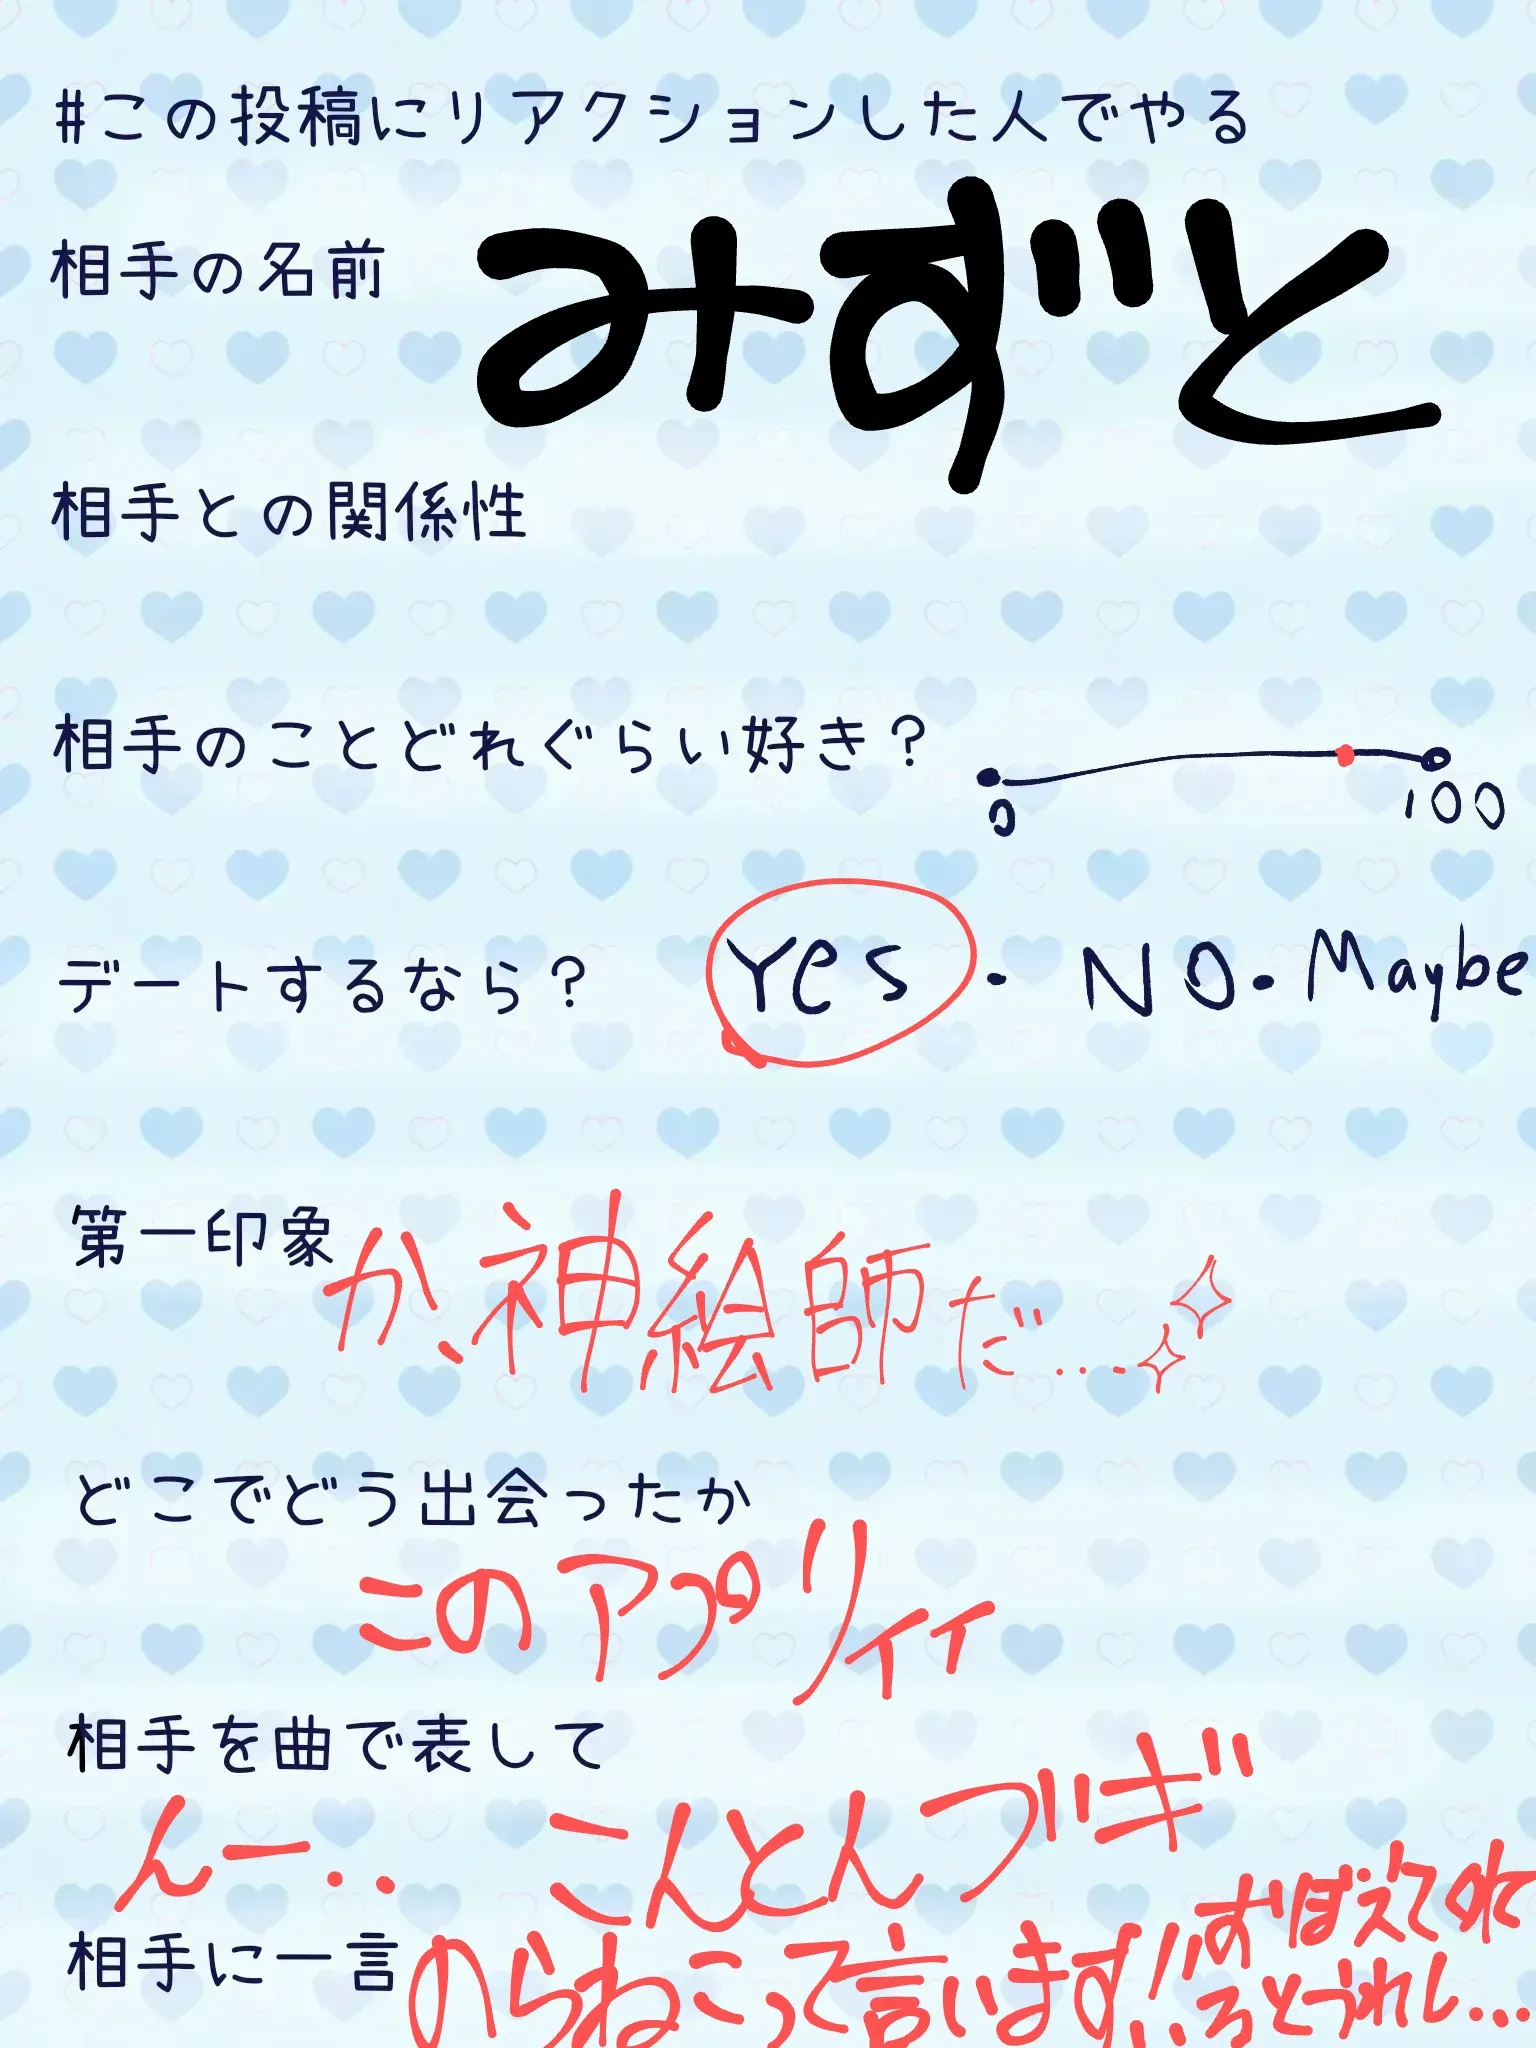 #この投稿にリアクションした人でやる
相手の名前 みずと
相手との関係性
相手のことどれぐらい好き？
0 100
デートするなら？ Yes・NO・Maybe
第一印象 か、神絵師だ...
どこでどう出会ったか
このアプリィィ
相手を曲で表して
んー.. こんとんブギ
相手に一言 のらねこって言います!!
おぼえてくれ
るとうれし...